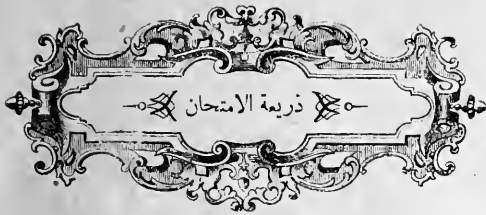 ذريعة الامتحان